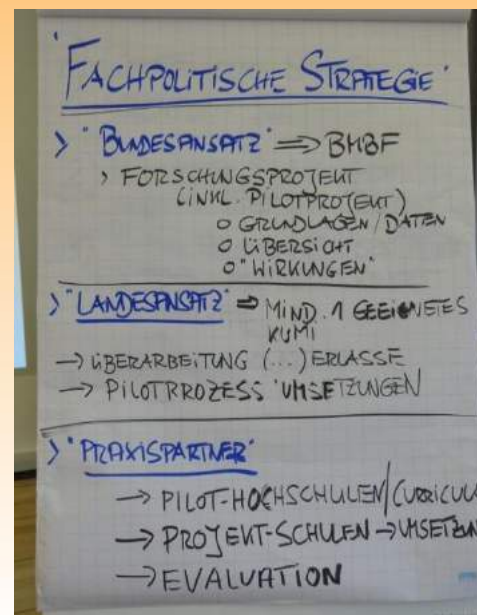 "FACHPOLITISCHE STRATEGIE"
> "BUNDESANSATZ" => BMBF
> FORSCHUNGSPROJEKT
(INKL. PILOTPROJEKT)
o GRUNDLAGEN / DATEN
o ÜBERSICHT
o "WIRKUNGEN"
> "LANDESANSATZ" => MIND. 1 GEEIGNETES
KUMI
-> ÜBERARBEITUNG (...) ERLASSE
-> PILOTPROZESS 'UMSETZUNGEN
> "PRAXISPARTNER"
-> PILOT-HOCHSCHULEN/CURRICUL
-> PROJEKT-SCHULEN -> UMSETZUN
-> EVALUATION